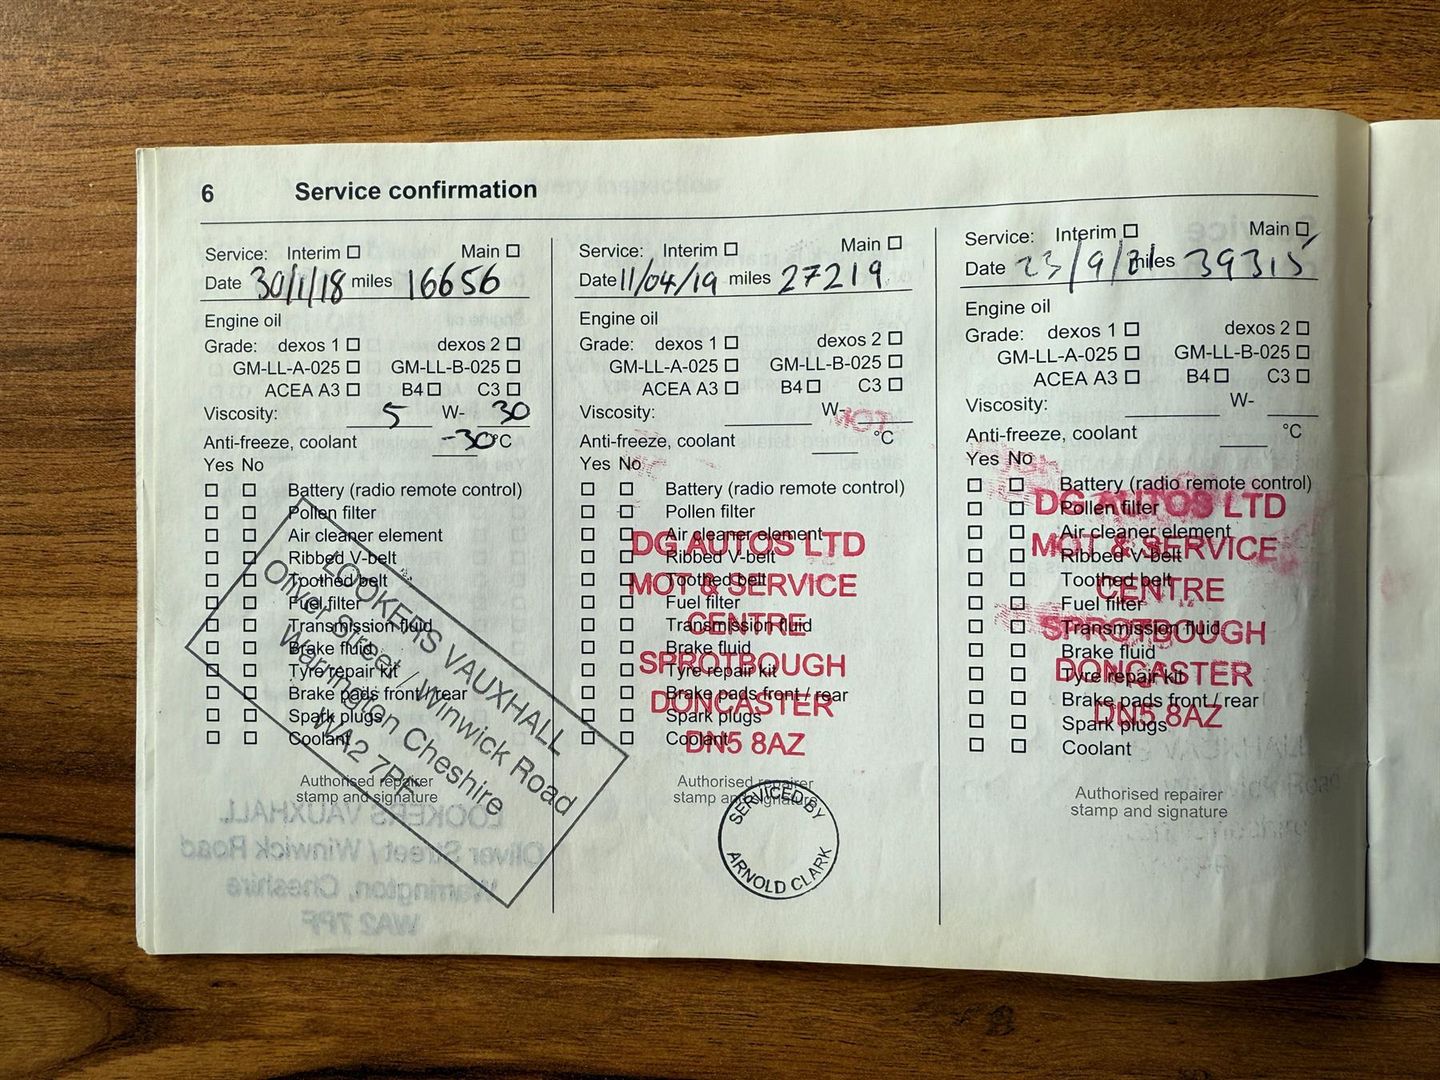 6 Service confirmation
Service: Interim ☐ Main ☐
Date 30/1/18 miles 16656
Engine oil
Grade: dexos 1 ☐ dexos 2 ☐
GM-LL-A-025 ☐ GM-LL-B-025 ☐
ACEA A3 ☐ B4 ☐ C3 ☐
Viscosity: 5 W- 30
Anti-freeze, coolant -30 °C
Yes No
☐ ☐ Battery (radio remote control)
☐ ☐ Pollen filter
☐ ☐ Air cleaner element
☐ ☐ Ribbed V-belt
☐ ☐ Toothed belt
☐ ☐ Fuel filter
☐ ☐ Transmission fluid
☐ ☐ Brake fluid
☐ ☐ Tyre repair kit
☐ ☐ Brake pads front / rear
☐ ☐ Spark plugs
☐ ☐ Coolant
Authorised repairer
stamp and signature
LOOKERS VAUXHALL
Oliver Street / Winwick Road
Warrington Cheshire
WA2 7PF
Service: Interim ☐ Main ☐
Date 11/04/19 miles 27219
Engine oil
Grade: dexos 1 ☐ dexos 2 ☐
GM-LL-A-025 ☐ GM-LL-B-025 ☐
ACEA A3 ☐ B4 ☐ C3 ☐
Viscosity: W-
MOT
Anti-freeze, coolant °C
Yes No
☐ ☐ Battery (radio remote control)
☐ ☐ Pollen filter
☐ ☐ Air cleaner element
☐ ☐ Ribbed V-belt
☐ ☐ Toothed belt
☐ ☐ Fuel filter
☐ ☐ Transmission fluid
☐ ☐ Brake fluid
☐ ☐ Tyre repair kit
☐ ☐ Brake pads front / rear
☐ ☐ Spark plugs
☐ ☐ Coolant
DG AUTOS LTD
MOT & SERVICE
CENTRE
SPROTBOUGH
DONCASTER
DN5 8AZ
Authorised repairer
stamp and signature
SERVICED BY
ARNOLD CLARK
Service: Interim ☐ Main ☐
Date 23/9/21 miles 39315
Engine oil
Grade: dexos 1 ☐ dexos 2 ☐
GM-LL-A-025 ☐ GM-LL-B-025 ☐
ACEA A3 ☐ B4 ☐ C3 ☐
Viscosity: W-
Anti-freeze, coolant °C
Yes No
☐ ☐ Battery (radio remote control)
☐ ☐ Pollen filter
☐ ☐ Air cleaner element
☐ ☐ Ribbed V-belt
☐ ☐ Toothed belt
☐ ☐ Fuel filter
☐ ☐ Transmission fluid
☐ ☐ Brake fluid
☐ ☐ Tyre repair kit
☐ ☐ Brake pads front / rear
☐ ☐ Spark plugs
☐ ☐ Coolant
DG AUTOS LTD
MOT & SERVICE
CENTRE
SPROTBOUGH
DONCASTER
DN5 8AZ
Authorised repairer
stamp and signature